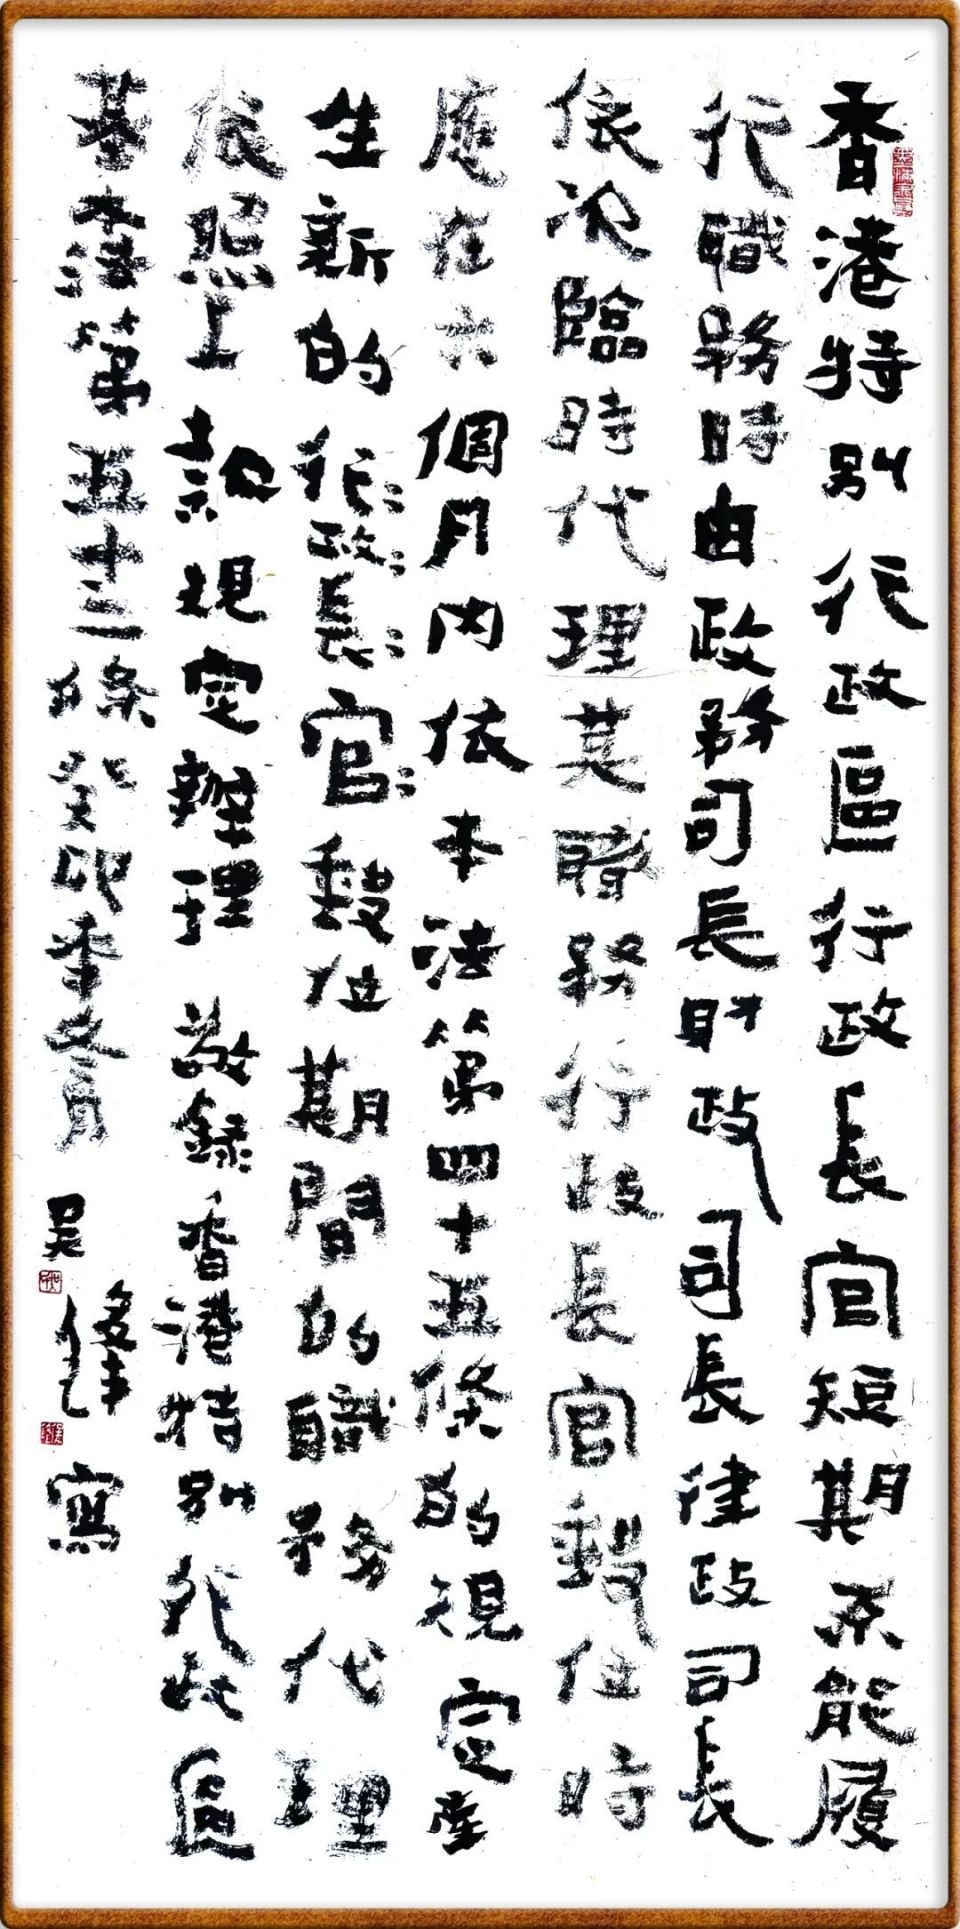 香港特別行政區行政長官短期不能履
行職務時由政務司長財政司長律政司長
依次臨時代理其職務行政長官缺位時
應在六個月內依本法第四十五條的規定產
生新的行政長官缺位期間的職務代理
依照上款規定辦理 敬錄香港特別行政區
基本法第五十三條 癸卯季冬月 吳 寫